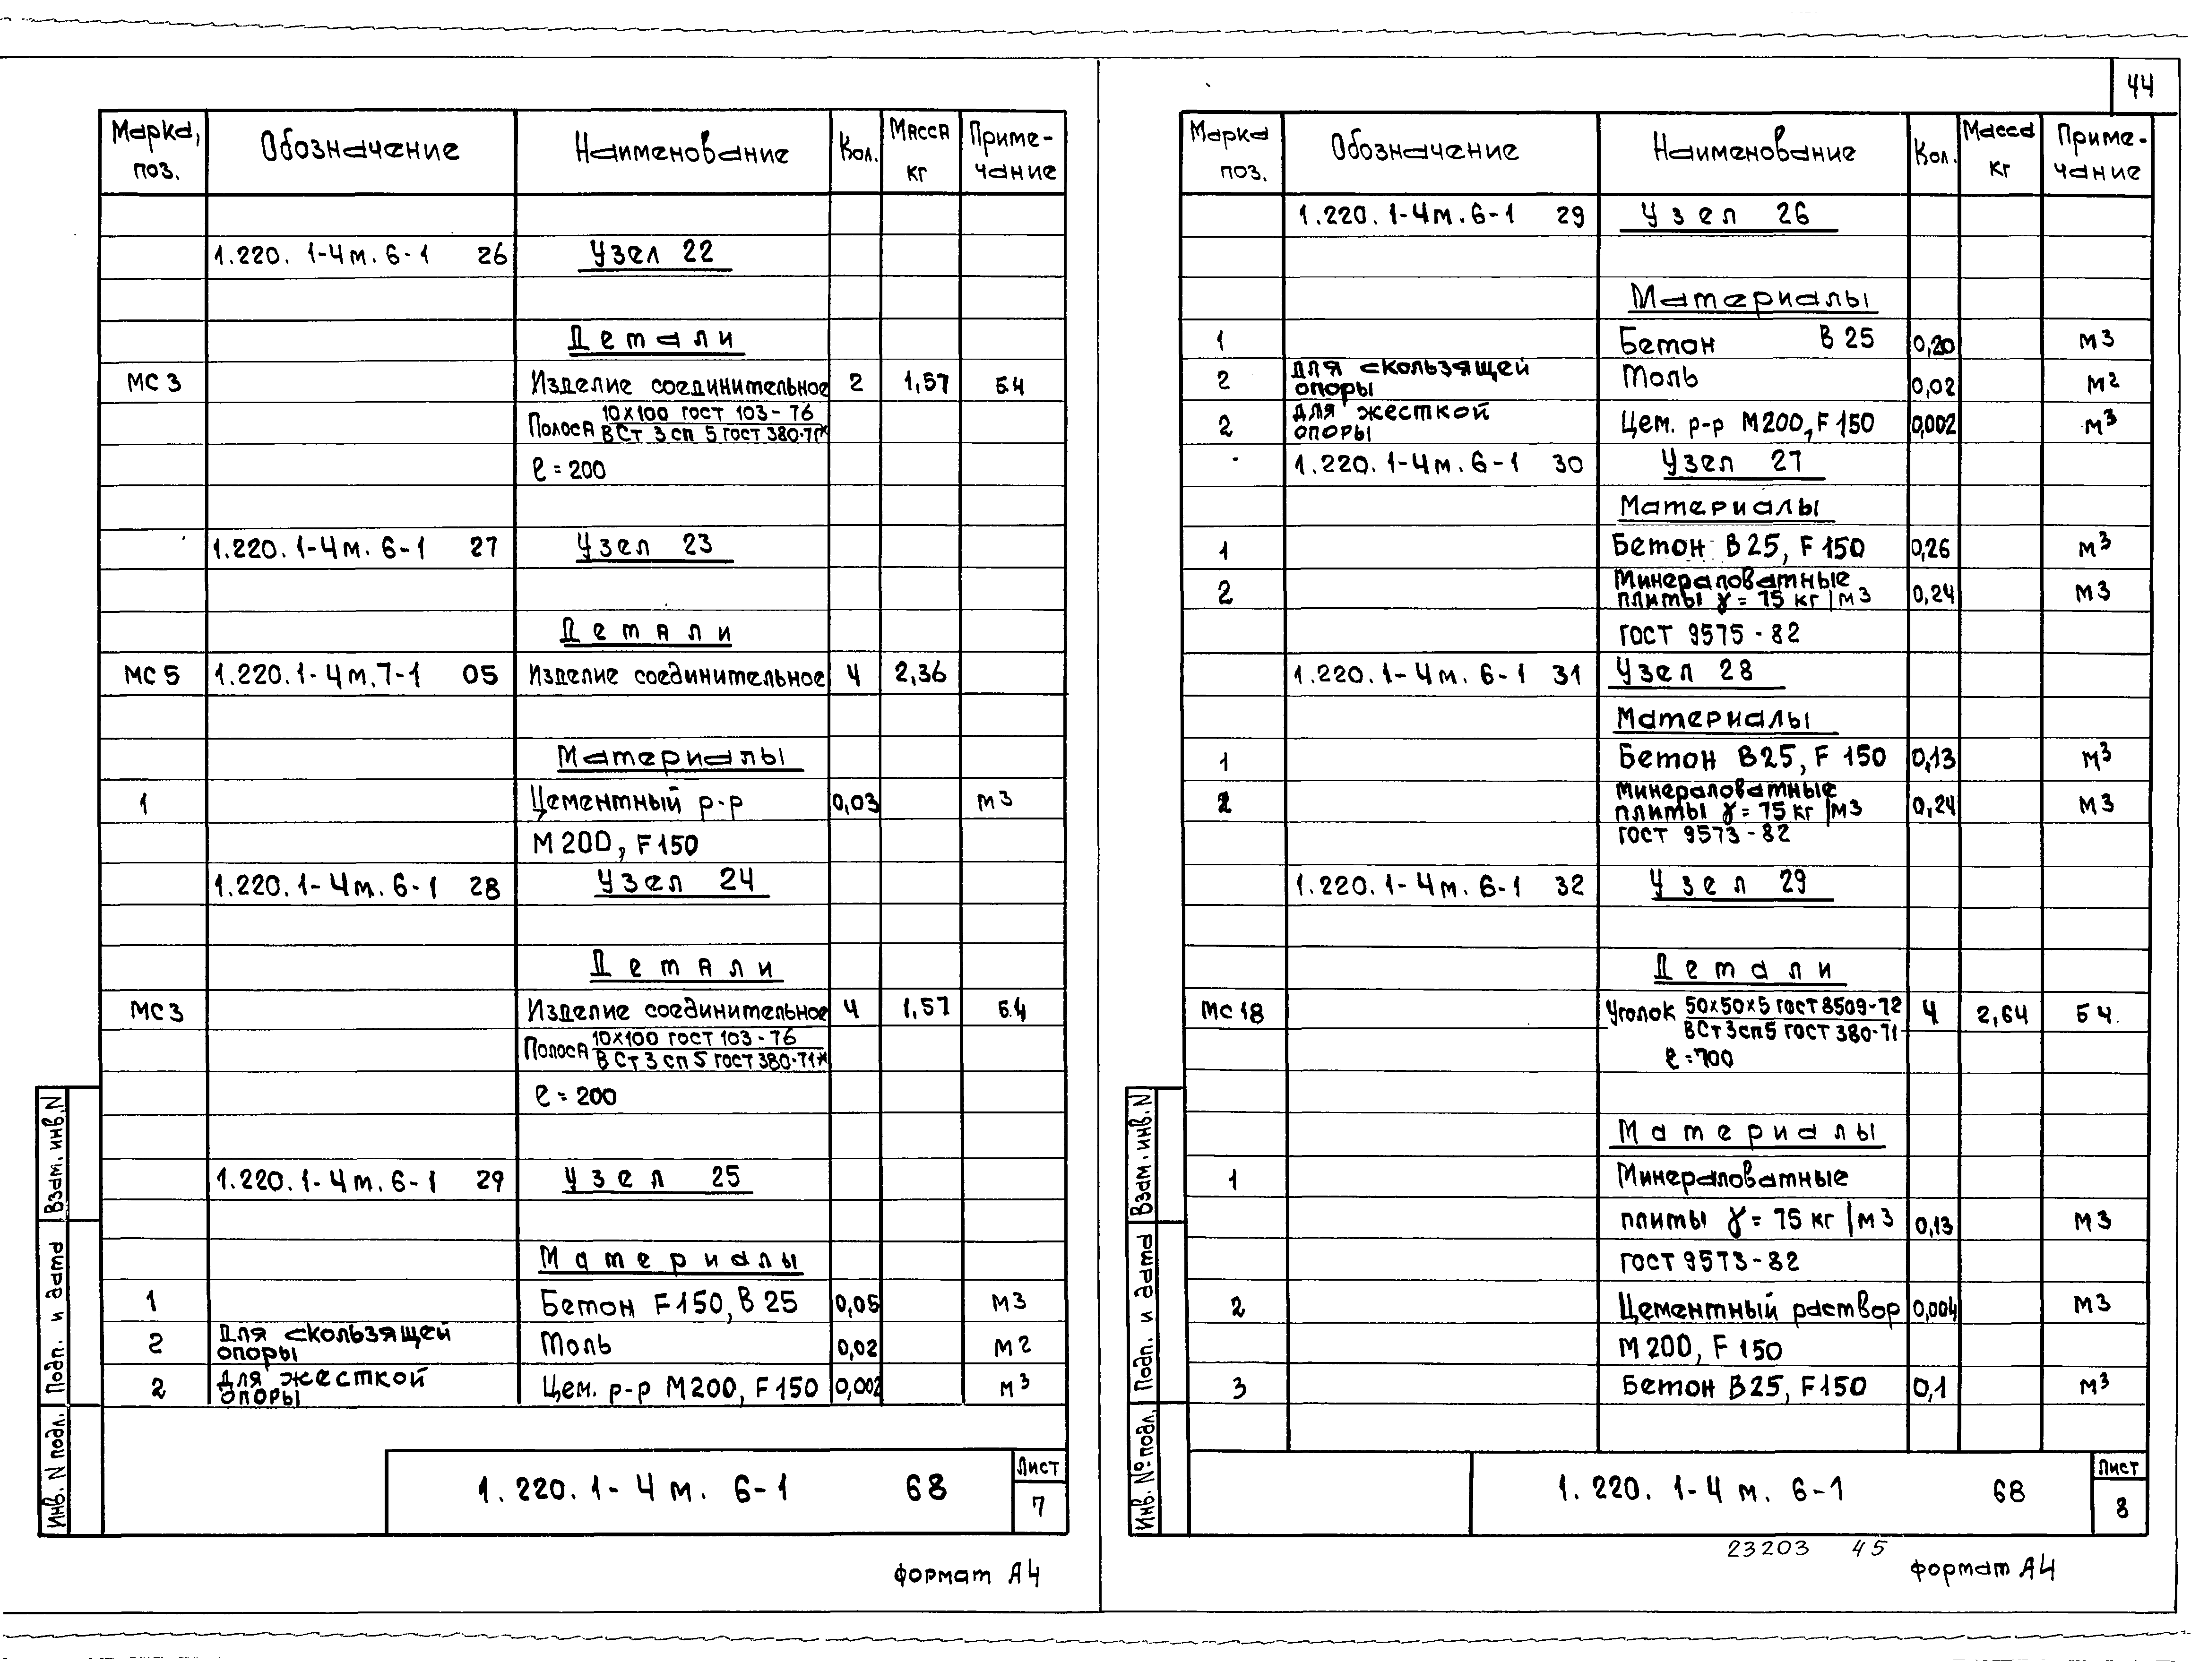 Марка, поз. Обозначение Наименование Кол. Масса кг Приме-чание
1.220.1-4м.6-1 26 Узел 22
Детали
МС3 Изделие соединительное 2 1,57 Б.Ч
Полоса 10х100 ГОСТ 103-76
ВСт 3сп 5 ГОСТ 380-71*
ℓ=200
1.220.1-4м.6-1 27 Узел 23
Детали
МС5 1.220.1-4м.7-1 05 Изделие соединительное 4 2,36
Материалы
1 Цементный р-р 0,03 м3
М200, F150
1.220.1-4м.6-1 28 Узел 24
Детали
МС3 Изделие соединительное 4 1,57 Б.Ч
Полоса 10х100 ГОСТ 103-76
ВСт 3сп 5 ГОСТ 380-71*
ℓ=200
1.220.1-4м.6-1 29 Узел 25
Материалы
1 Бетон F150, В25 0,05 м3
2 Для скользящей опоры Толь 0,02 м2
2 Для жесткой опоры Цем. р-р М200, F150 0,002 м3
Взам. инв. N
Подп. и дата
Инв. N подл.
1.220.1-4м. 6-1 68
Лист
7
формат А4
44
Марка поз. Обозначение Наименование Кол. Масса кг Приме-чание
1.220.1-4м.6-1 29 Узел 26
Материалы
1 Бетон В25 0,20 м3
2 Для скользящей опоры Толь 0,02 м2
2 Для жесткой опоры Цем. р-р М200, F150 0,002 м3
1.220.1-4м.6-1 30 Узел 27
Материалы
1 Бетон В25, F150 0,26 м3
2 Минераловатные
плиты γ=75 кг/м3 0,24 м3
ГОСТ 9575-82
1.220.1-4м.6-1 31 Узел 28
Материалы
1 Бетон В25, F150 0,13 м3
2 Минераловатные
плиты γ=75 кг/м3 0,24 м3
ГОСТ 9573-82
1.220.1-4м.6-1 32 Узел 29
Детали
МС18 Уголок 50х50х5 ГОСТ 8509-72 4 2,64 БЧ.
ВСт3сп5 ГОСТ 380-71
ℓ=700
Материалы
1 Минераловатные
плиты γ=75 кг/м3 0,13 м3
ГОСТ 9573-82
2 Цементный раствор 0,004 м3
М200, F150
3 Бетон В25, F150 0,1 м3
Взам. инв. N
Подп. и дата
Инв. № подл.
1.220.1-4м. 6-1 68
Лист
8
23203 45
формат А4